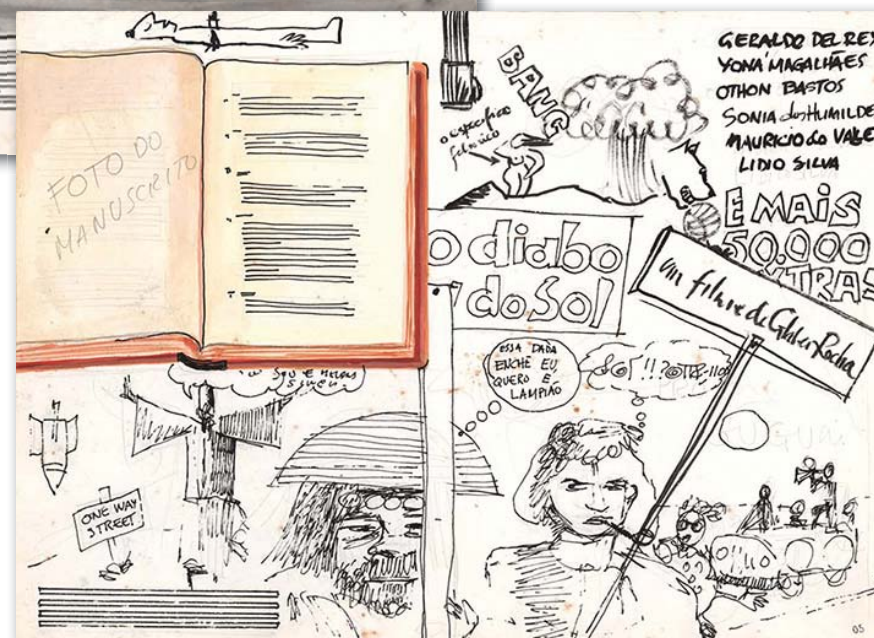 FOTO DO
MANUSCRITO
BANG
o específico
fílmico
GERALDO DEL REY
YONÁ MAGALHÃES
OTHON BASTOS
SONIA dos HUMILDE
MAURICIO do VALLE
LIDIO SILVA
E MAIS
50.000
EXTRAS
o diabo
do Sol
Um filme de Glauber Rocha
ESSA DADA
ENCHE EU,
QUERO É
LAMPIÃO
ONE WAY
STREET
05